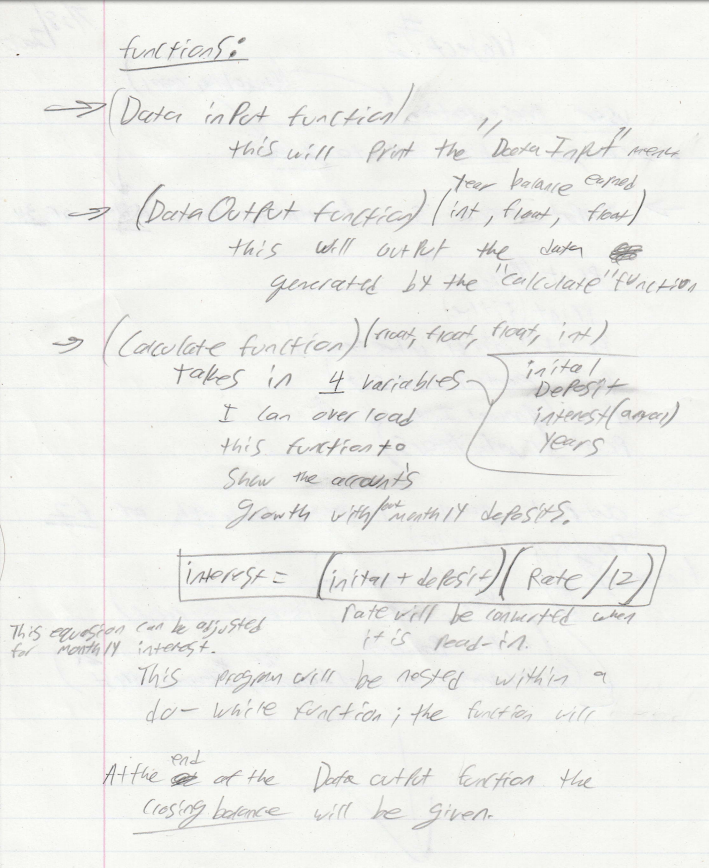 functions:
(Data input function)
this will print the "Data Input" menu
year balance earned
(Data Output function) (int, float, float)
this will output the data
generated by the "calculate" function
(Calculate function) (float, float, float, int)
takes in 4 variables
inital
Deposit
interest (anual)
years
I can over load
this function to
show the accounts
growth with/out monthly deposits.
interest = (inital + deposit) (Rate/12)
rate will be converted when
it is read-in.
This equasion can be adjusted
for monthly interest.
This program will be nested within a
do-while function; the function will
At the end of the Data output function the
closing balance will be given.